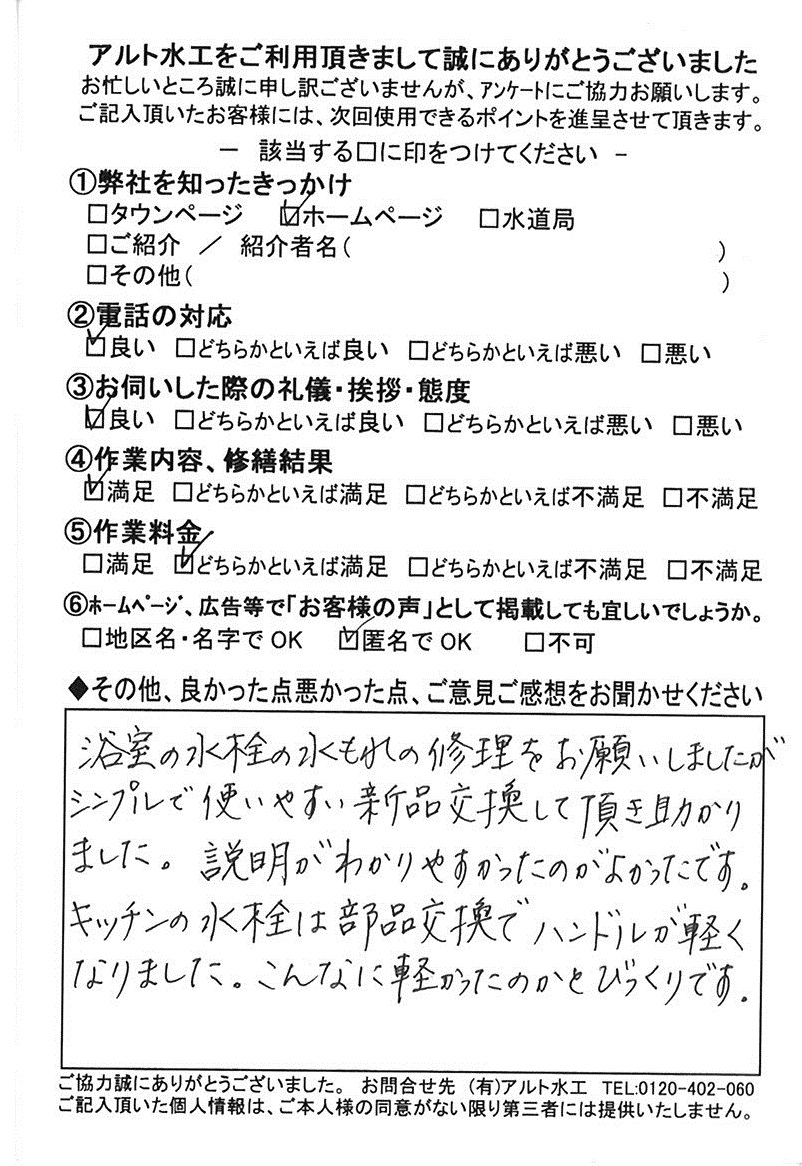 アルト水工をご利用頂きまして誠にありがとうございました
お忙しいところ誠に申し訳ございませんが、アンケートにご協力お願いします。
ご記入頂いたお客様には、次回使用できるポイントを進呈させて頂きます。
－ 該当する□に印をつけてください －
①弊社を知ったきっかけ
□タウンページ ☑ホームページ □水道局
□ご紹介 ／ 紹介者名( )
□その他( )
②電話の対応
☑良い □どちらかといえば良い □どちらかといえば悪い □悪い
③お伺いした際の礼儀・挨拶・態度
☑良い □どちらかといえば良い □どちらかといえば悪い □悪い
④作業内容、修繕結果
☑満足 □どちらかといえば満足 □どちらかといえば不満足 □不満足
⑤作業料金
□満足 ☑どちらかといえば満足 □どちらかといえば不満足 □不満足
⑥ホームページ、広告等で「お客様の声」として掲載しても宜しいでしょうか。
□地区名・名字でOK ☑匿名でOK □不可
◆その他、良かった点悪かった点、ご意見ご感想をお聞かせください
浴室の水栓の水もれの修理をお願いしましたが
シンプルで使いやすい新品交換して頂き助かり
ました。説明がわかりやすかったのがよかったです。
キッチンの水栓は部品交換でハンドルが軽く
なりました。こんなに軽かったのかとびっくりです。
ご協力誠にありがとうございました。 お問合せ先 (有)アルト水工 TEL:0120-402-060
ご記入頂いた個人情報は、ご本人様の同意がない限り第三者には提供いたしません。